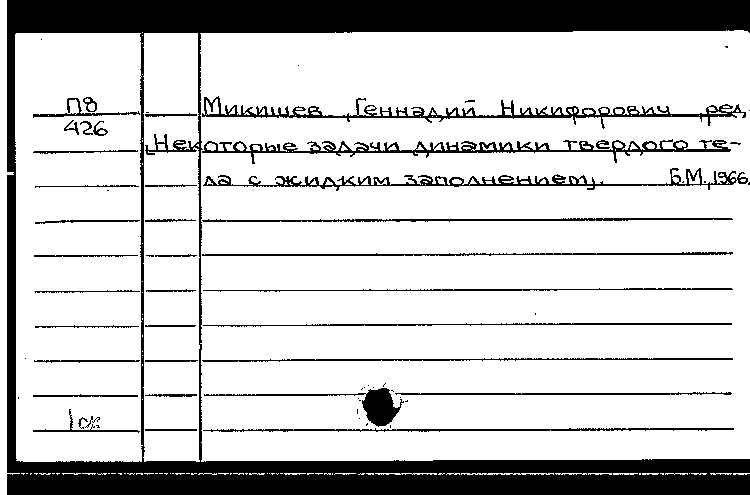 П8
426
Микишев, Геннадий Никифорович, ред.
[Некоторые задачи динамики твердого те-
ла с жидким заполнением]. Б.М., 1966.
1 ск